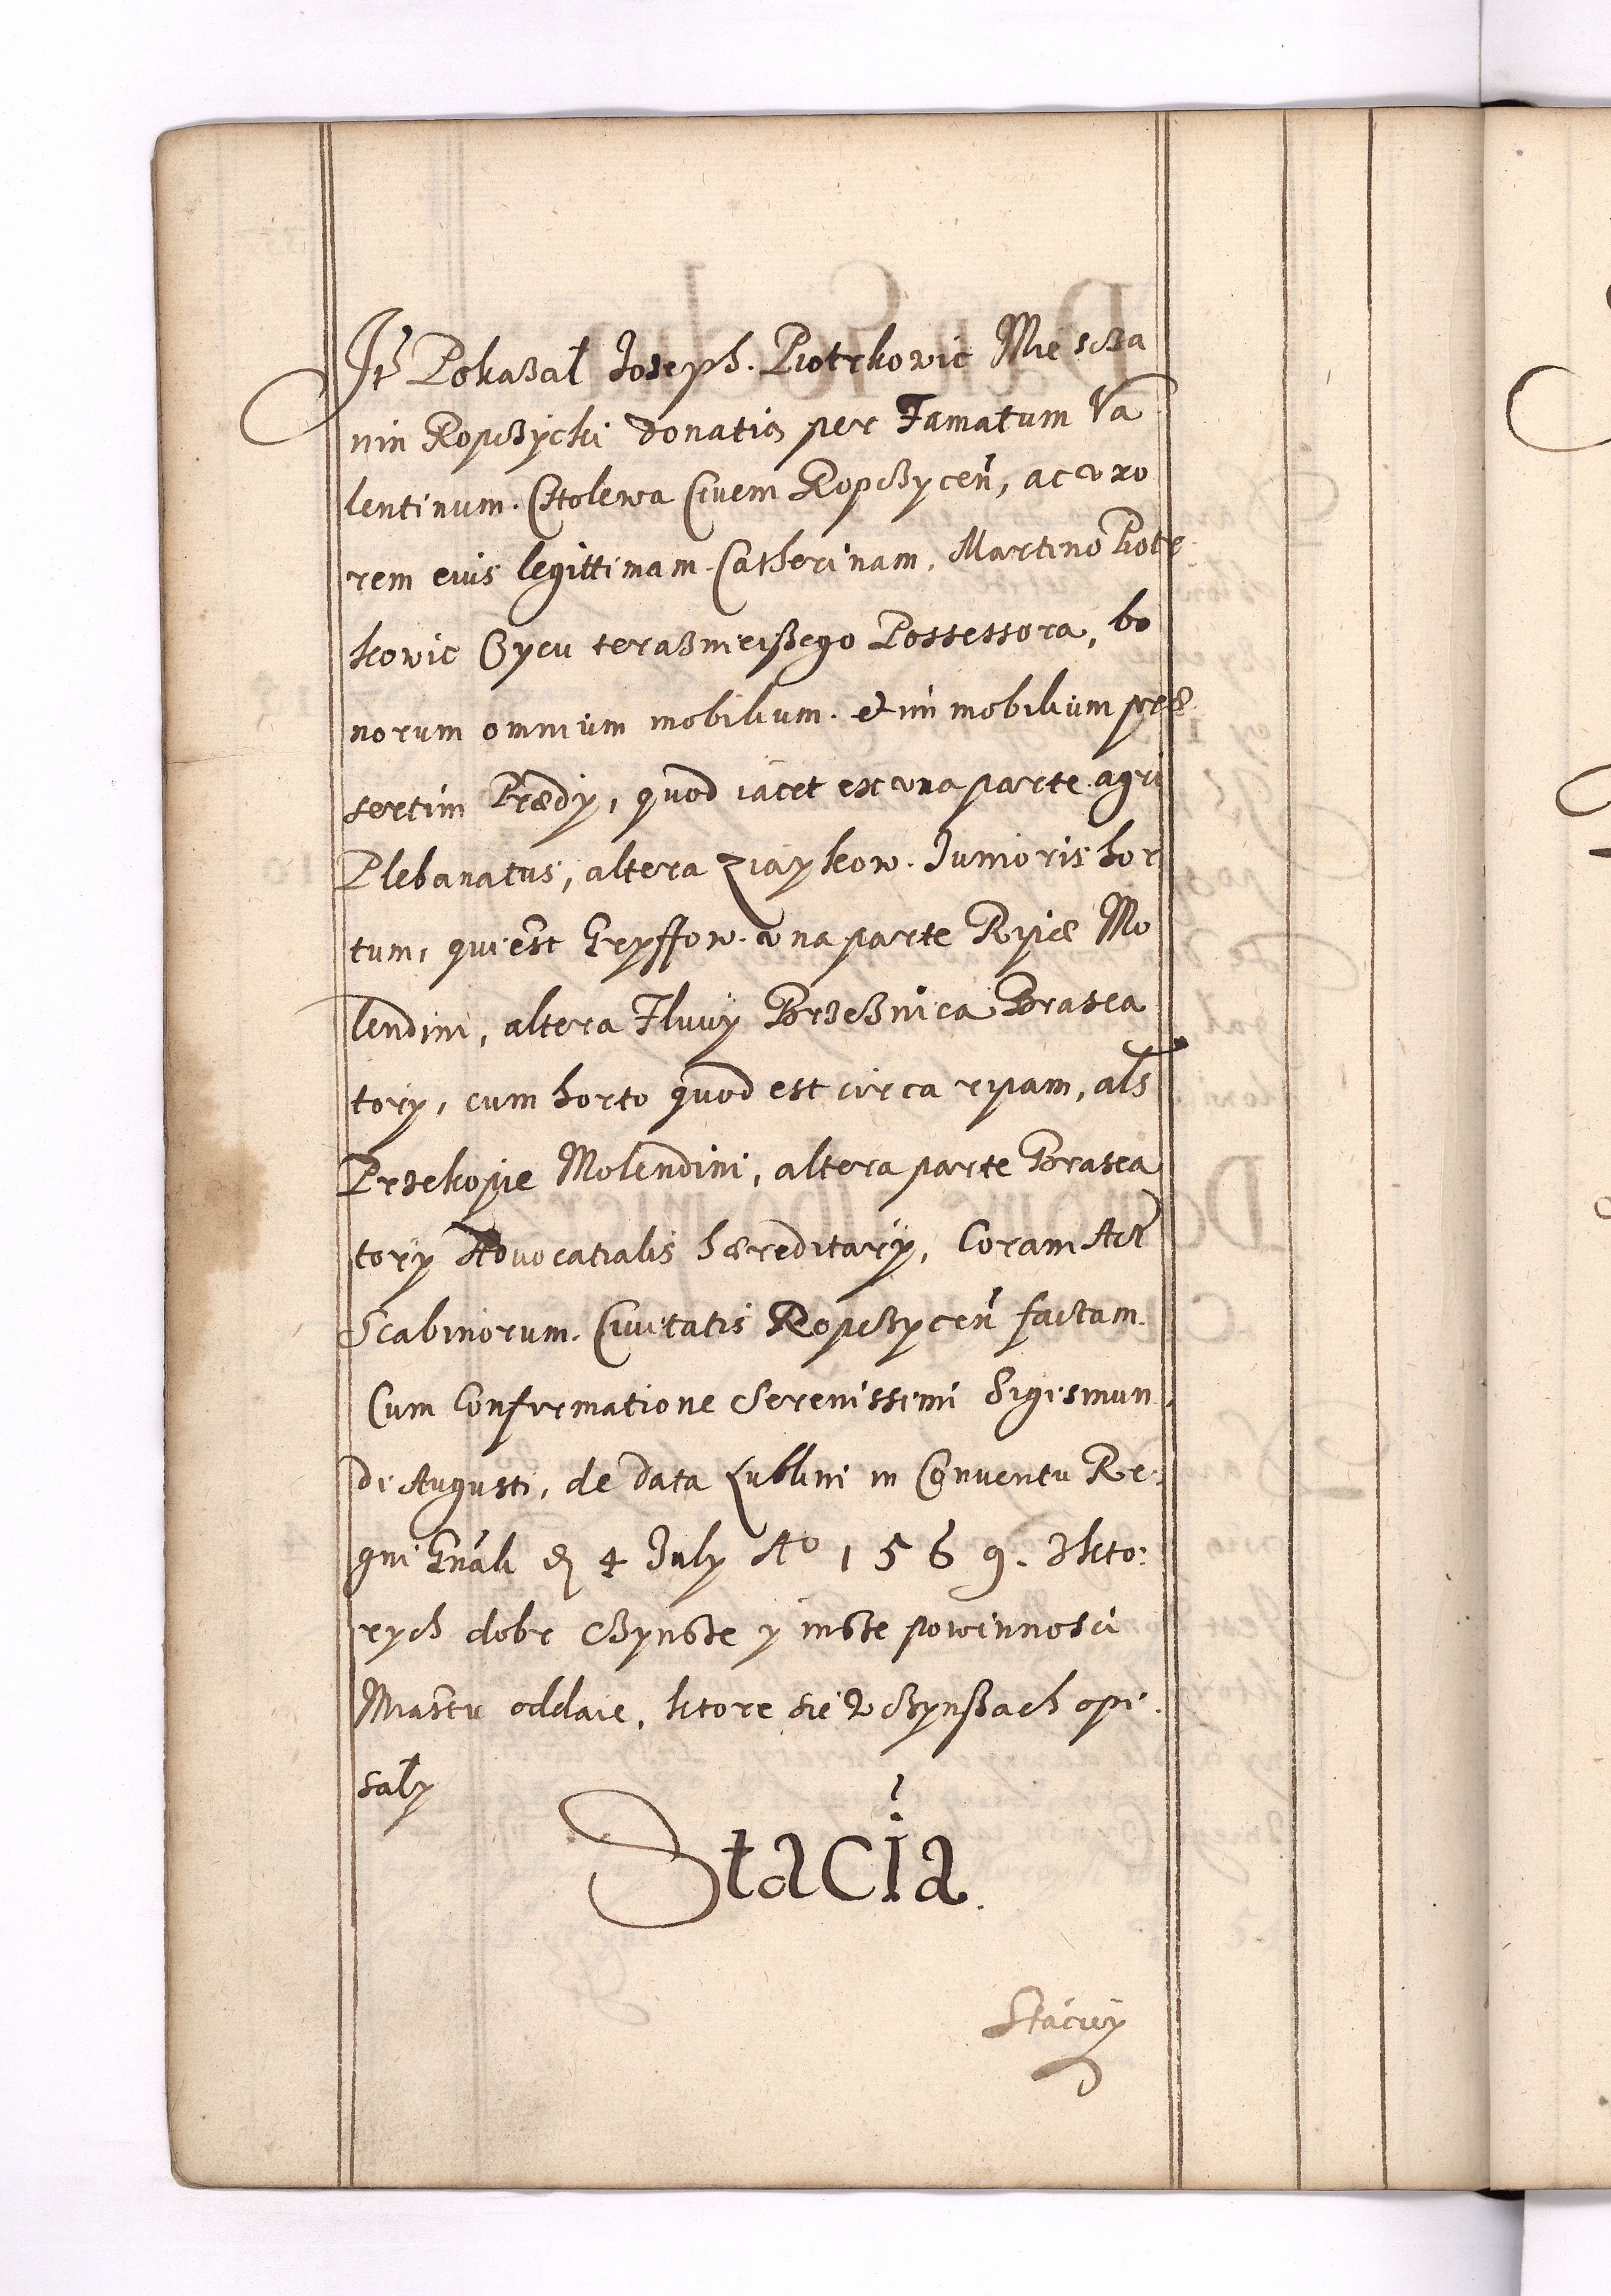 It Pokaßał Joseph. Piotrkowic Miescża
nin Ropcżycki donatio per Famatum Va
lentinum. Citolewa Civem Ropcżyceń, ac uxo
rem eius legittimam. Catherinam, Martino Piotr
kowic Oycu teraßnieißego Possessora, bo
norum omnium mobilium. et im mobilium præ
sertim Prædy, quod iacet ex una parte agri
Plebanatus, altera Ziaykow. Iunioris hor
tum, qui est Gryffow. una parte Ripæ Mo
lendini, altera Fluuy Brzeßnica Braxea
tory, cum horto quod est circa ripam, als
Przekopie Molendini, altera parte Braxea
tory Advocatialis hæreditary, Coram Act
Scabinorum. Civitatis Ropcżyceń factam.
Cum Confirmatione Serenissimi Sigismun
di Augusti, de data Lublini in Conventu Re-
gni Gnali D 4 July Ao 1569. Zkto-
rych dobr cżynsze y insze powinnosci
Miastu oddaie, ktore sie w cżynßach opi
sały
Stacia.
Staciey